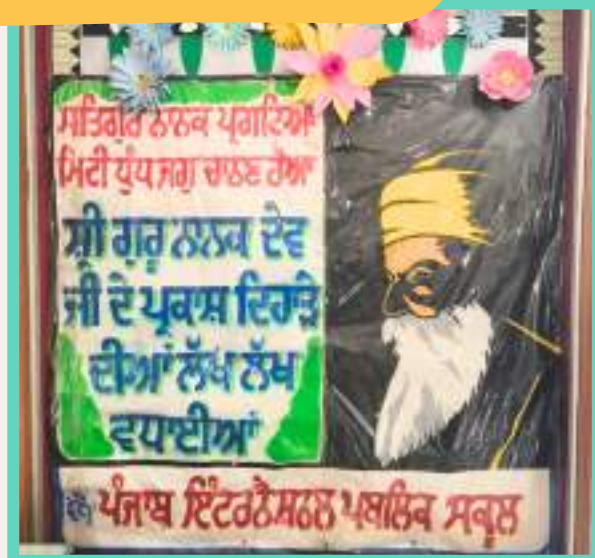 ਸਤਿਗੁਰ ਨਾਨਕ ਪ੍ਰਗਟਿਆ
ਮਿਟੀ ਧੁੰਧ ਜਗੁ ਚਾਨਣ ਹੋਆ
ਸ਼੍ਰੀ ਗੁਰੂ ਨਾਨਕ ਦੇਵ
ਜੀ ਦੇ ਪ੍ਰਕਾਸ਼ ਦਿਹਾੜੇ
ਦੀਆਂ ਲੱਖ ਲੱਖ
ਵਧਾਈਆਂ
ਵੱਲੋਂ ਪੰਜਾਬ ਇੰਟਰਨੈਸ਼ਨਲ ਪਬਲਿਕ ਸਕੂਲ